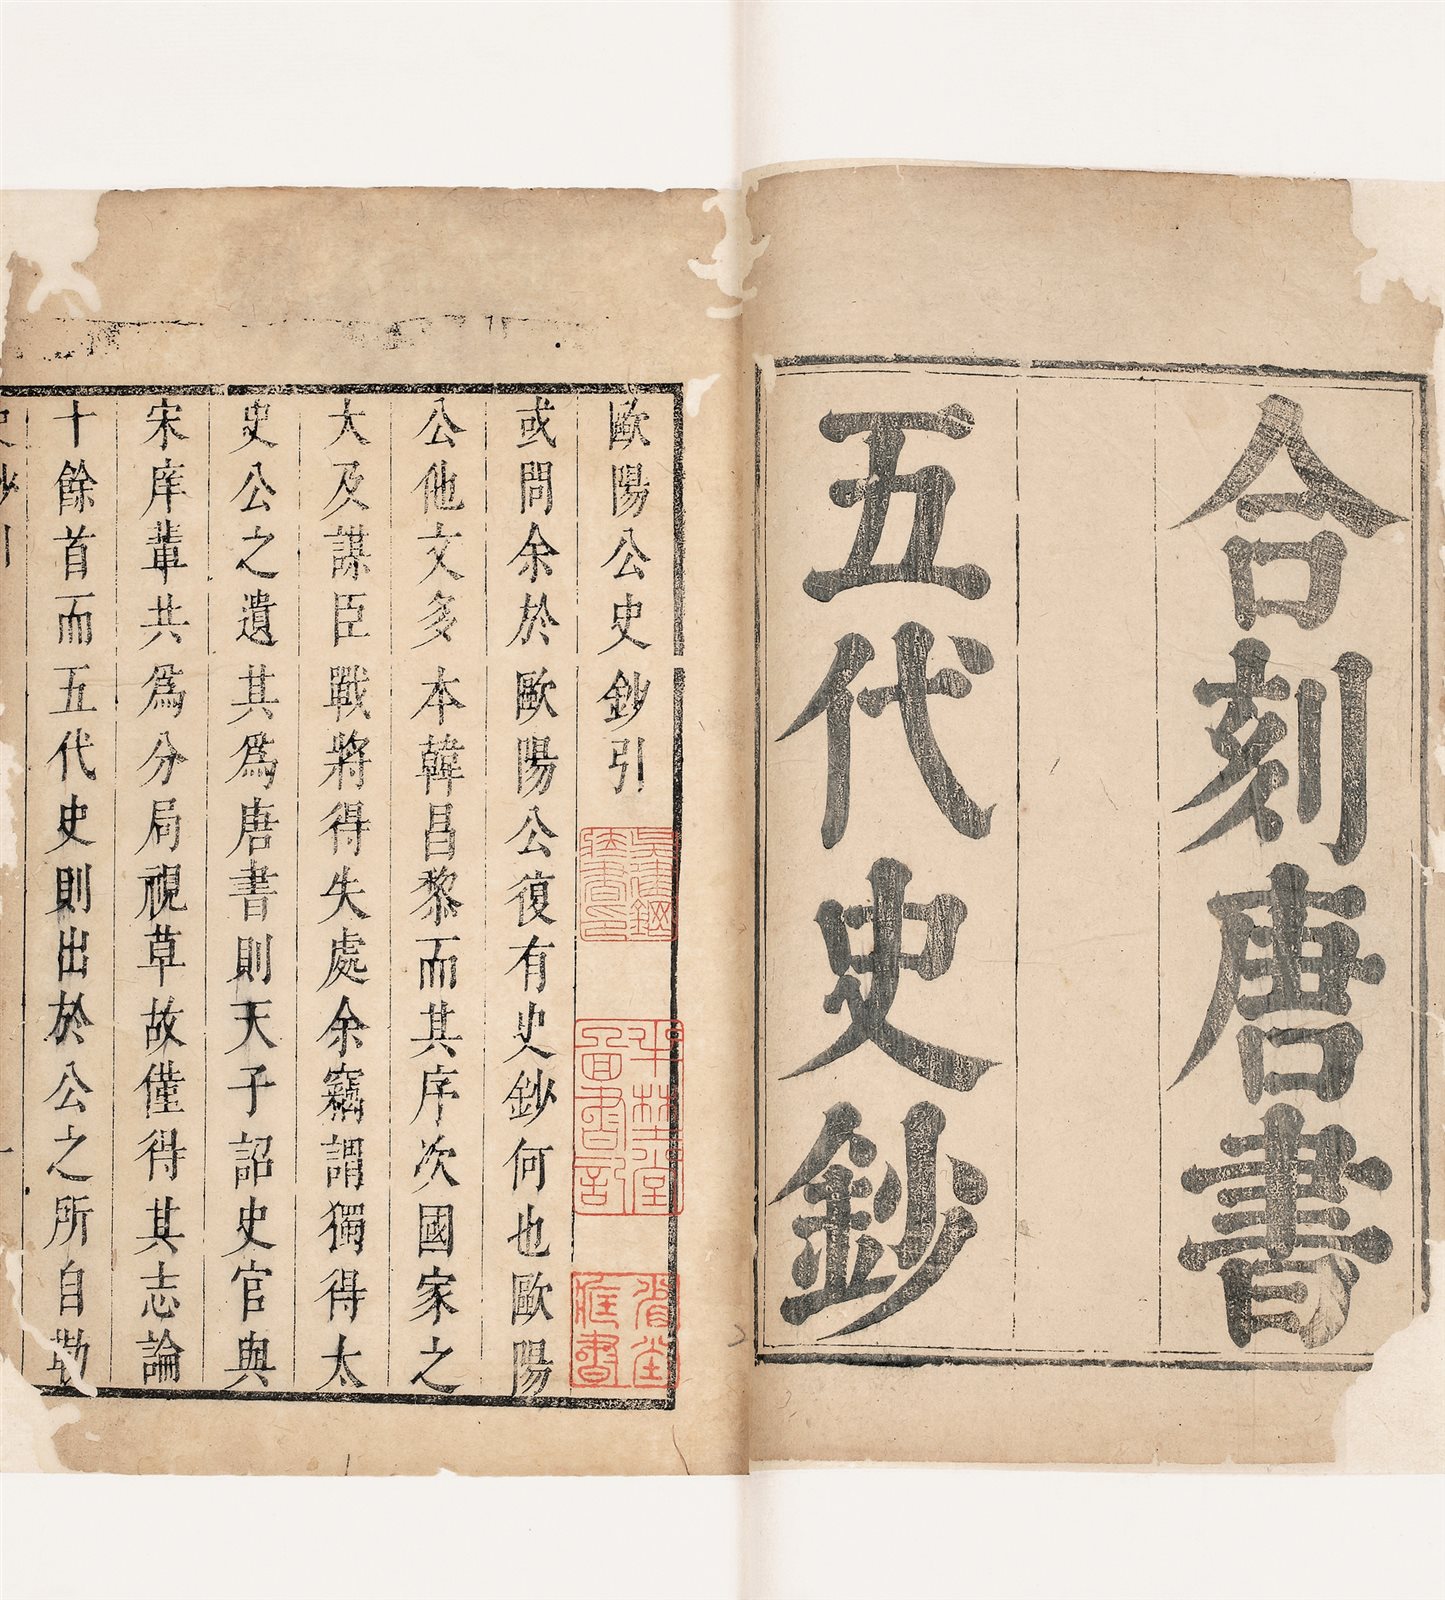 合刻唐書
五代史鈔
歐陽公史鈔引
或問余於歐陽公復有史鈔何也歐陽
公他文多本韓昌黎而其序次國家之
大及謀臣戰將得失處余竊謂獨得太
史公之遺其為唐書則天子詔史官與
宋庠輩共為分局視草故僅得其志論
十餘首而五代史則出於公之所自勒
史鈔引
一